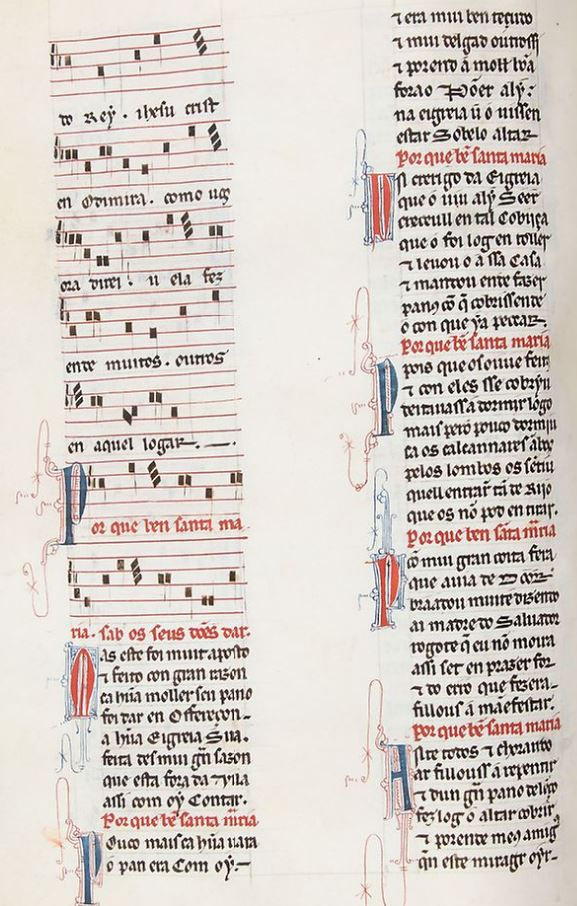 do Rey · ihesu crist
en Odimira · como uos
ora direi · u ela fez
ente muitos · outros
en aquel logar ·
Por que ben santa ma
ria · sab os seus dões dar·
Mas este foi muit aposto
⁊ feito con gran razon
ca hũa moller seu pano
foi dar en Offereçon-
a hũa Eigreia Sua·
feita des mui grã sazon
que esta fora da vila
assi com oy Contar·
Por que bẽ santa maria
Pouco mais ca hũa uara
o pan era Com oy:-
⁊ era mui ben teçudo
⁊ mui delgad outrossi
⁊ porend a moll bõa
forao Põer aly:
na eigreia u o uissen
estar Sobelo altar
Por que bẽ santa maria
crerigo da Eigreia
que o uiu aly Seer
creceull en tal Cobiiça
que o foi log en toller
⁊ leuou o a ssa Casa
⁊ mandou ende fazer
panos cõ q̃ cobrissende
o con que ya peccar·
Por que bẽ santa maria
Pois que os ouue feitos
⁊ con eles sse cobryu
deitouass a dormir logo
mais pero pouco dormiu
ca os calcannares ambos
pelos lombos os sentiu
quell entrarã tã de Rijo
que os nõ pod en tirar·
Por que ben sãta maria
cõ mui gran coita fera
que auia de Door
braadou muit e dizendo
ai madre do Saluador
rogote q̃ eu nõ moira
assi ser en prazer for
⁊ do erro que fezera-
fillous a mãefestar·
Por que bẽ santa maria
Aste todos ⁊ chorando
ar fillouss a repentir
⁊ dun grã pano deliço
fez log o altar cobrir
⁊ porende meos amigos
quen este miragr oyr-